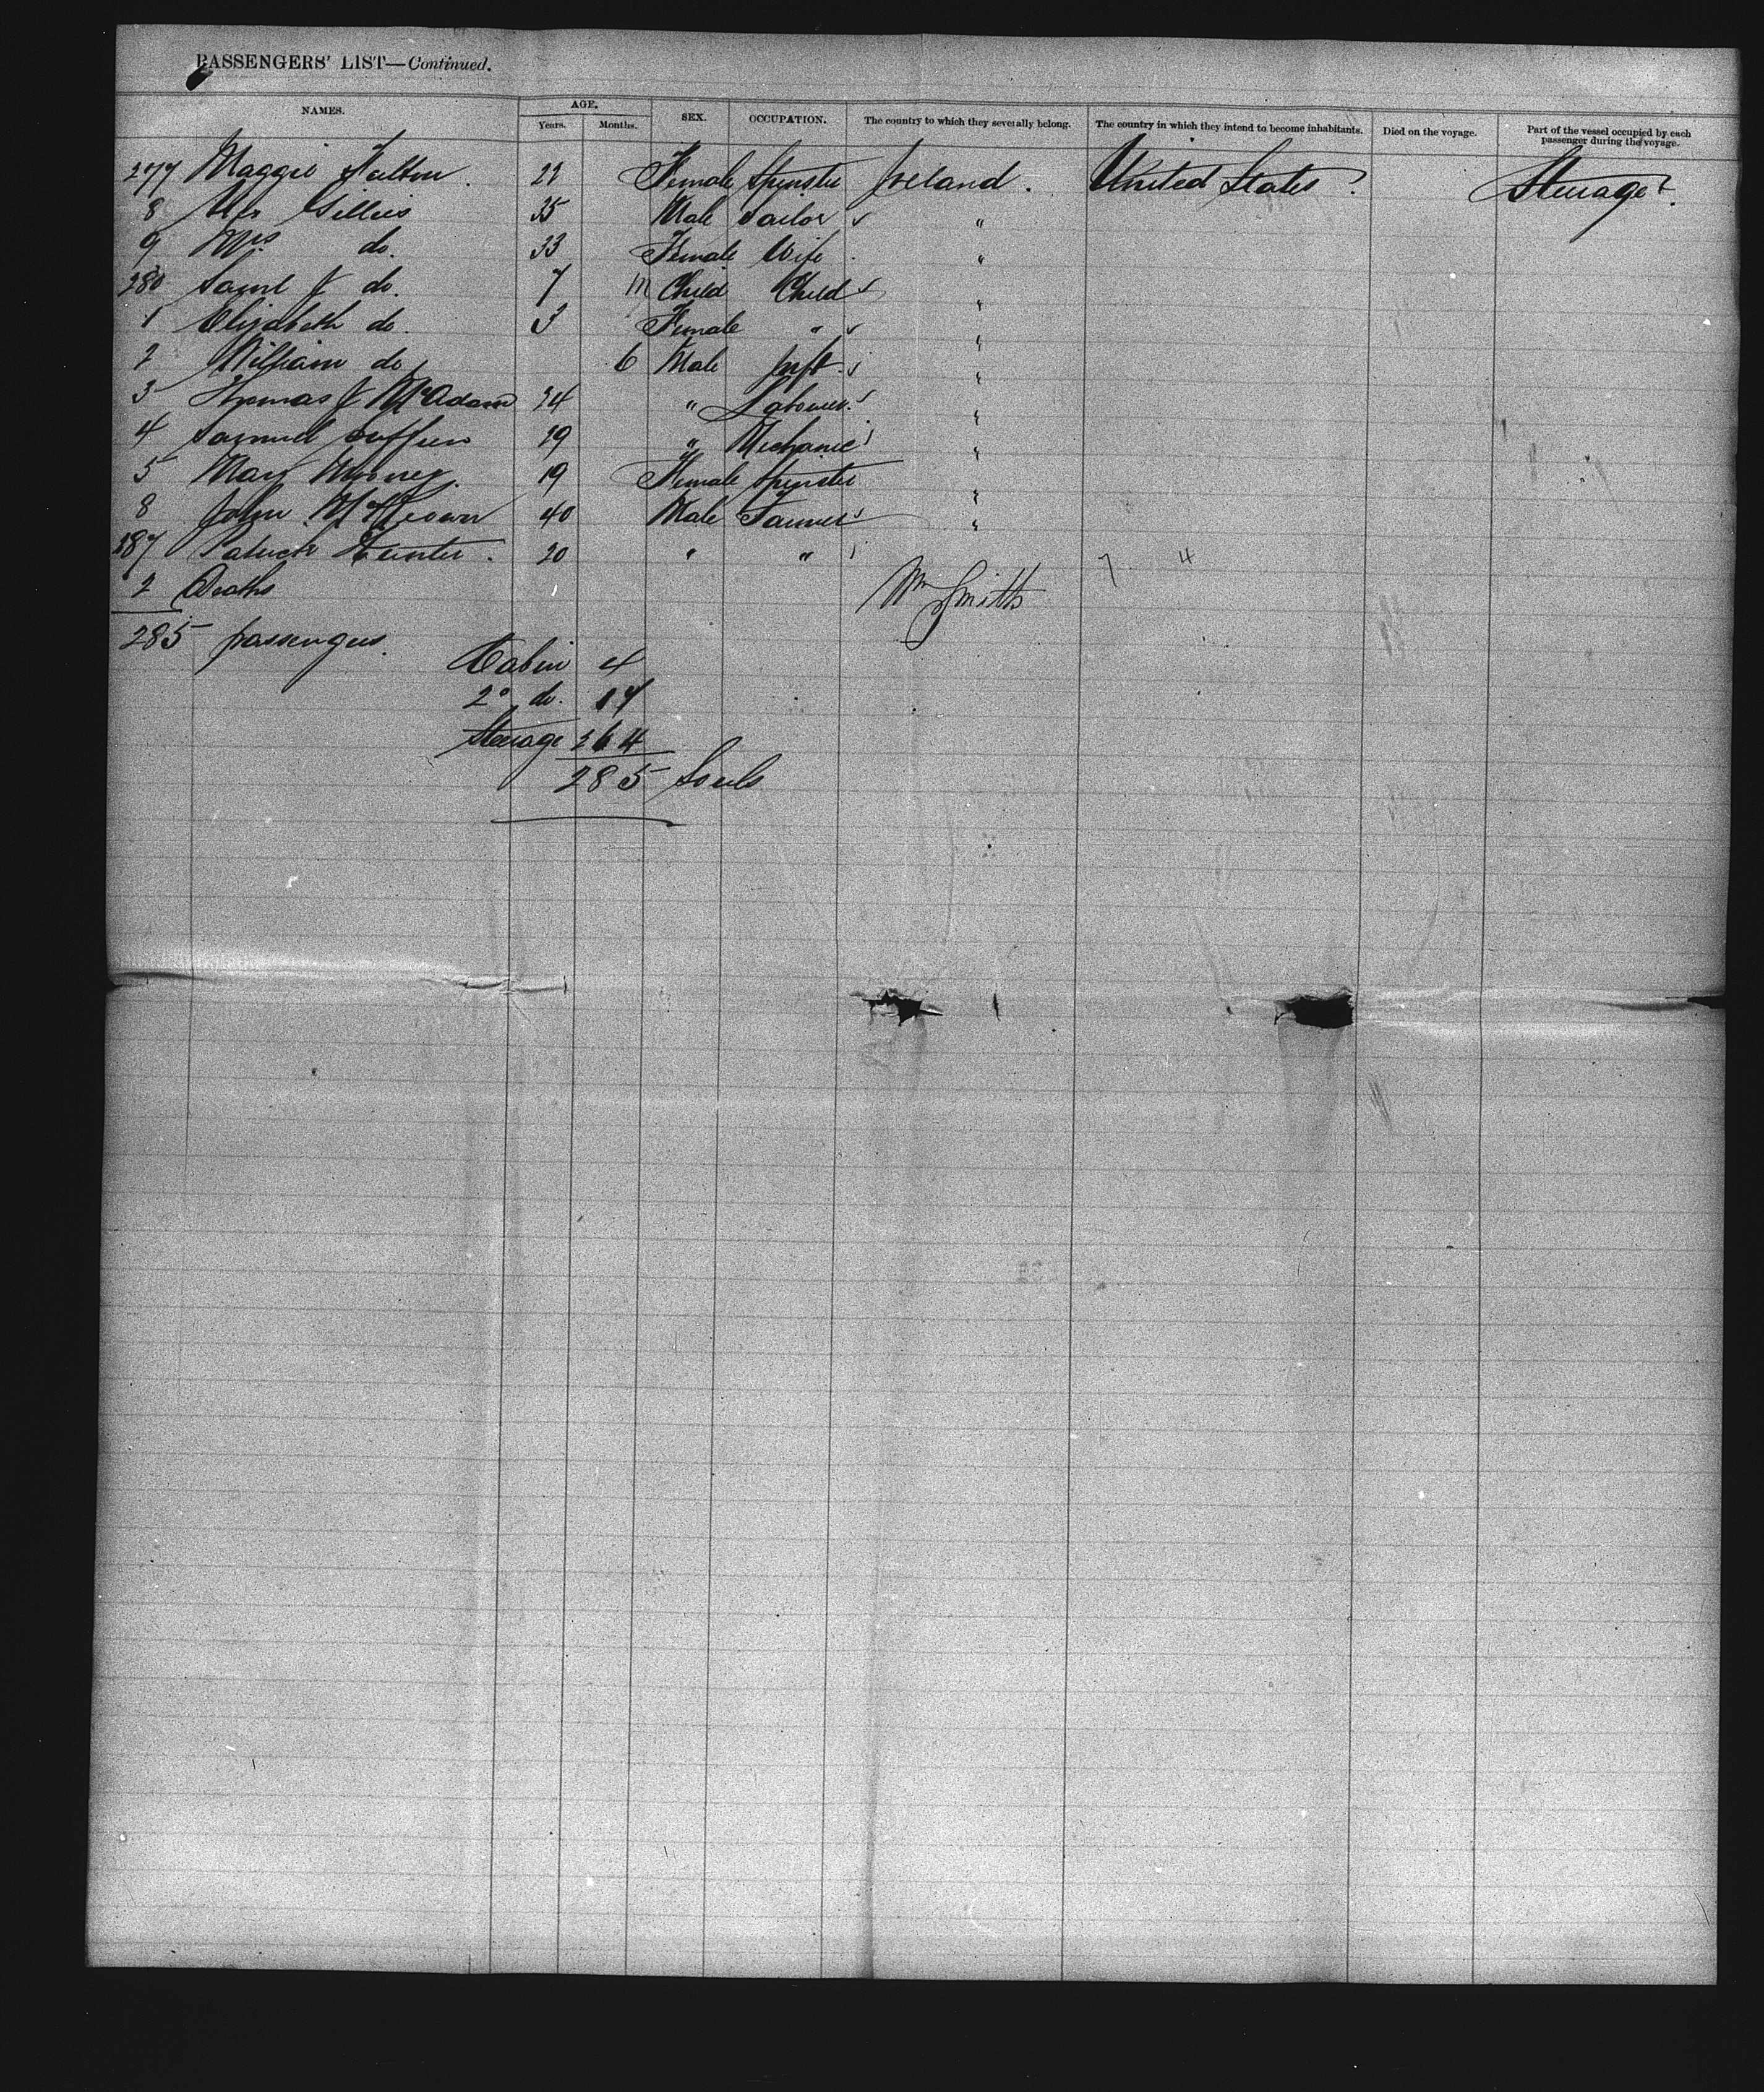 PASSENGERS' LIST—Continued.
NAMES. AGE. Years. Months. SEX. OCCUPATION. The country to which they severally belong. The country in which they intend to become inhabitants. Died on the voyage. Part of the vessel occupied by each passenger during the voyage.
277 Maggie 22 Female Spinster Ireland. United States. Steerage.
8 Mr Gillies 35 Male Sailor "
9 Mrs do. 33 Female Wife "
280 Saml J do. 7 M Child Child "
1 Elizabeth do. 3 Female " "
2 William do 6 Male Inft "
3 Thomas J McAdam 24 " Labourer "
4 Samuel 19 " Mechanic "
5 Mary 19 Female Spinster "
8 John McKeown 40 Male Farmer "
287 Patrick Hunter. 20 " "
2 Deaths Wm Smith 7 4
285 passengers.
Cabin 4
2º do. 17
Steerage 264
285 Souls